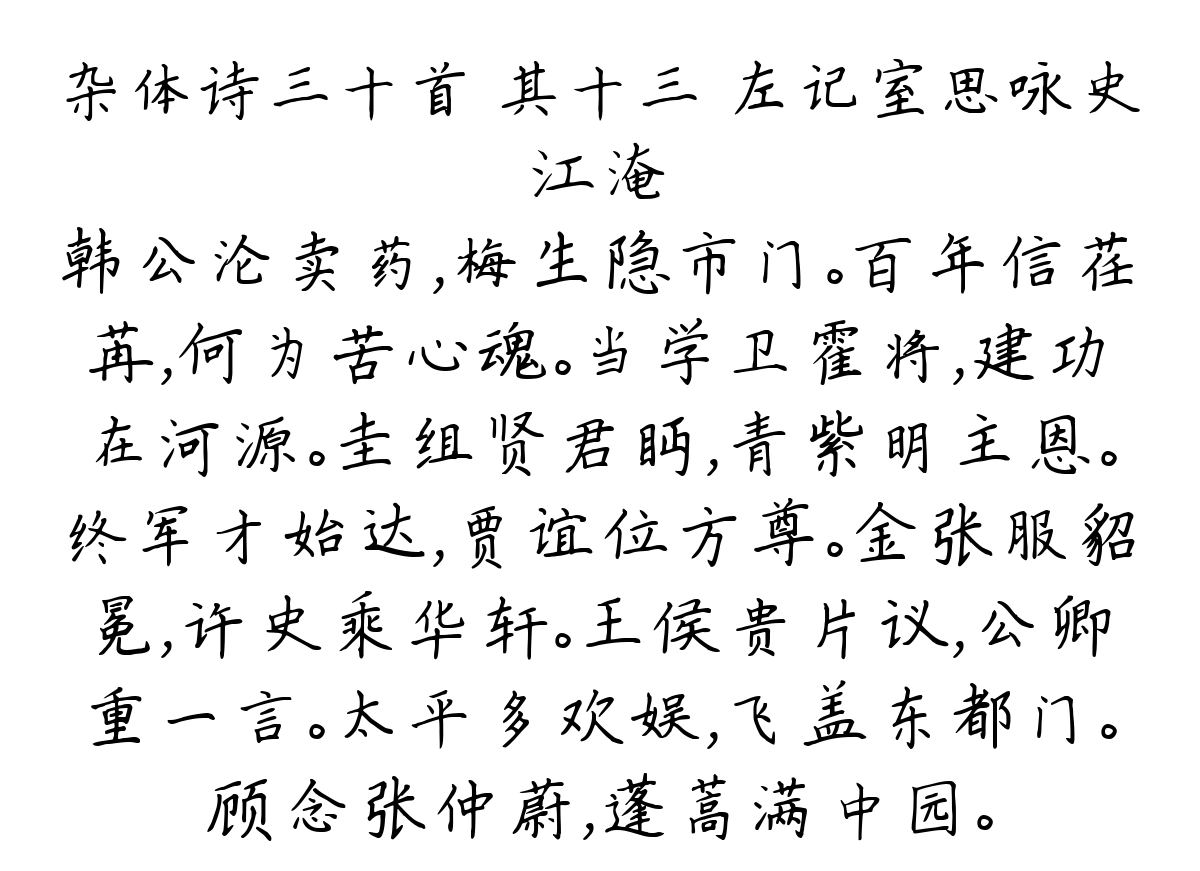 杂体诗三十首 其十三 左记室思咏史
江淹
韩公沦卖药,梅生隐市门。百年信荏
苒,何为苦心魂。当学卫霍将,建功
在河源。圭组贤君眄,青紫明主恩。
终军才始达,贾谊位方尊。金张服貂
冕,许史乘华轩。王侯贵片议,公卿
重一言。太平多欢娱,飞盖东都门。
顾念张仲蔚,蓬蒿满中园。